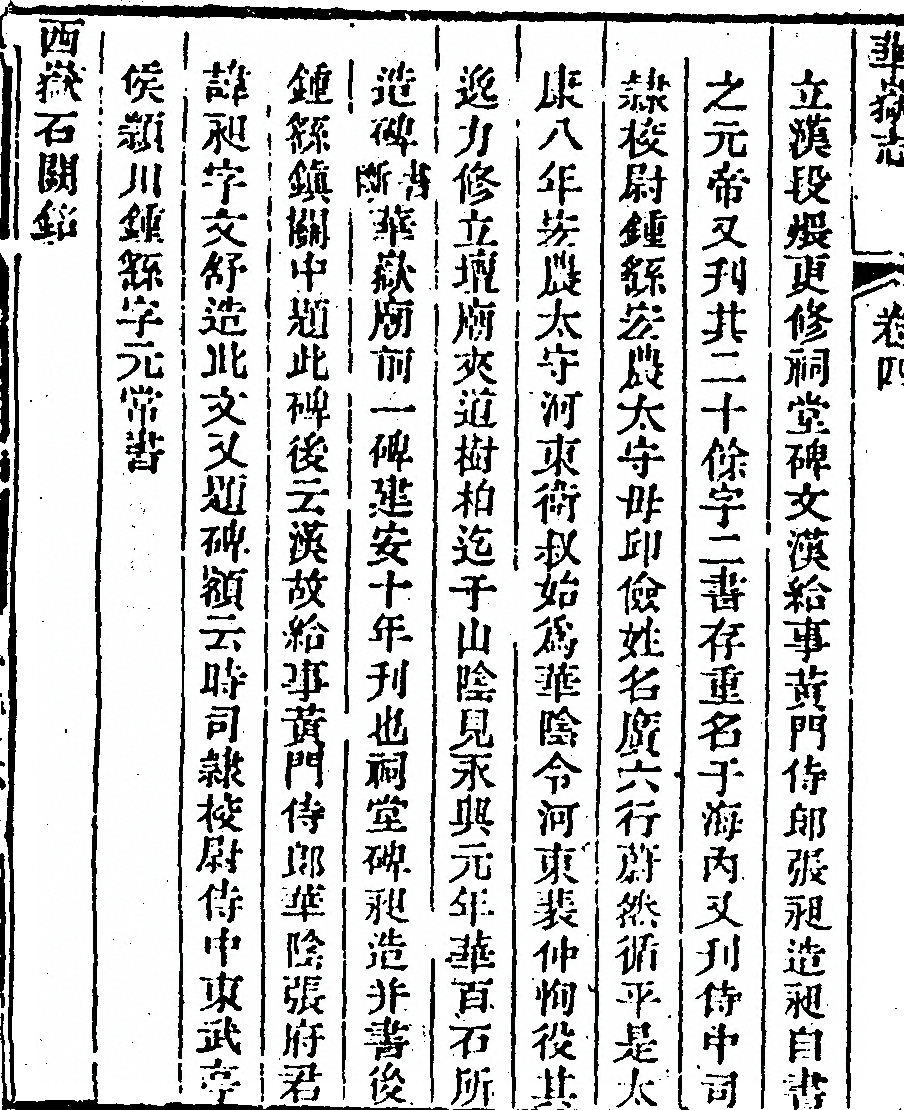 華嶽志
卷四
立漢段煨更修祠堂碑文漢給事黃門侍郎張昶造昶自書
之元帝又刊其二十餘字二書存重名于海內又刊侍中司
隷校尉鍾繇宏農太守毋邱儉姓名廣六行蔚然循平是太
康八年宏農太守河東衛叔始爲華陰令河東裴仲恂役其
逸力修立壇廟夾道樹柏迄于山陰見永興元年華百石所
造碑斷書華嶽廟前一碑建安十年刊也祠堂碑昶造并書後
鍾繇鎮關中題此碑後云漢故給事黃門侍郎華陰張府君
諱昶字文舒造此文又題碑額云時司隷校尉侍中東武亭
侯潁川鍾繇字元常書
西嶽石闕銘